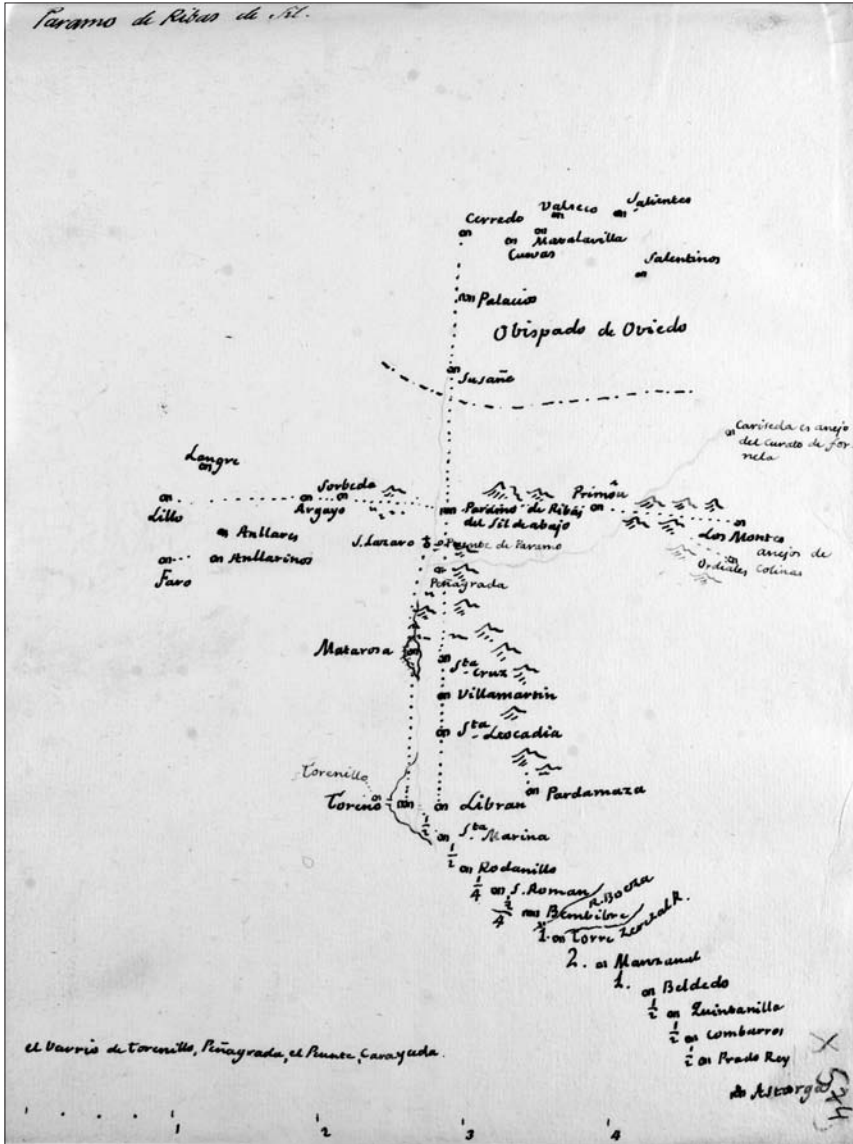 Paramo de Ribas de Sil.
Cerredo
Valseco
Salientes
Matalavilla
Cuevas
Salentinos
Palacios
Obispado de Oviedo
Susañe
Cariseda es anejo
del curato de for-
nela
Langre
Sorbeda
Primôu
Lillo
Argayo
Pardino de Ribas
del Sil de abajo
Los Montes
anejos de
Ordiales Colinas
Anllares
Anllarinos
Faro
S. Lazaro
Puente de Paramo
Peñagrada
Matarosa
Sta Cruz
Villamartin
Sta Leocadia
Torenillo
Toreno
Libran
Pardamaza
1/2
Sta Marina
1/2
Rodanillo
1/4
S. Roman
Bembibre
R. Boeza
1.
Torre
2.
Manzanal
1.
Beldedo
1/2
Quintanilla
1/2
Combarros
1/2
Prado Rey
Astorga
el Varrio de Torenillo, Peñagrada, el Puente,
1 2 3 4